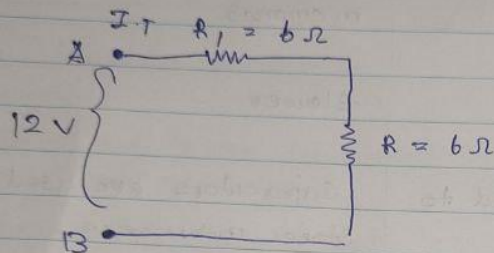 I.T R₁ = 6 Ω
A
12 V
R = 6 Ω
B